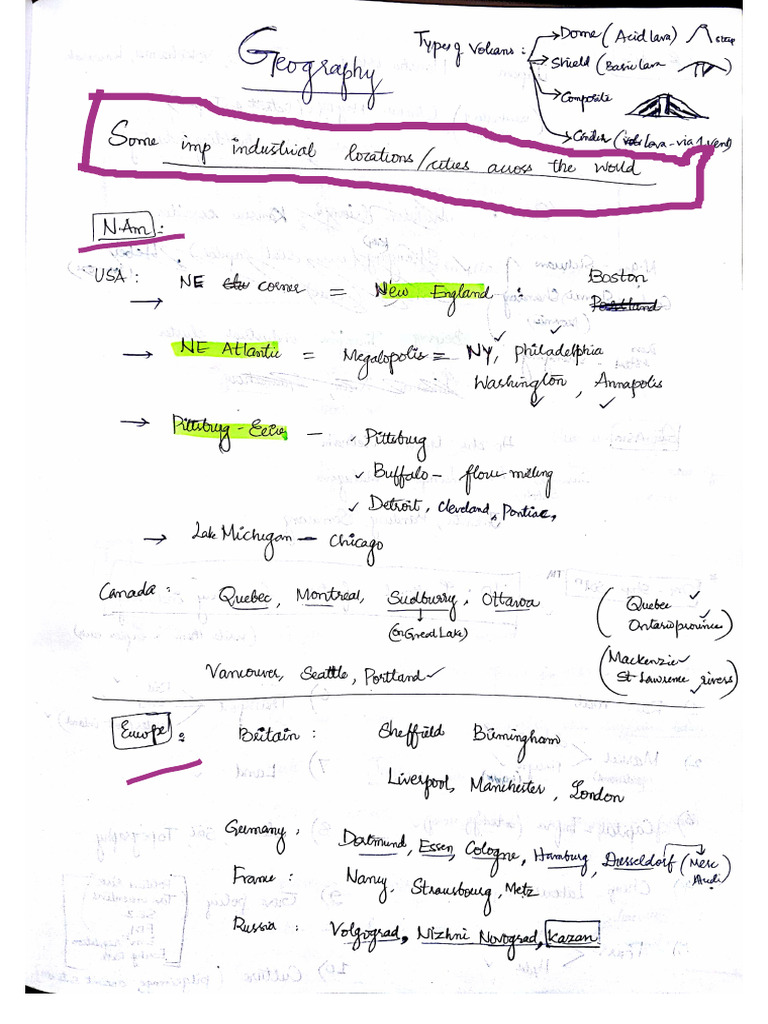 Geography
Types of Volcans :
Dome (Acid lava) steep
Shield (Basic lava)
Composite
Cinder (lava - via 1 vent)
Some imp industrial locations/cities across the world
N.Am :
USA : NE corner = New England : Boston
Portland
→ NE Atlantic = Megalopolis = NY, Philadelphia
Washington, Annapolis
→ Pittsburg - Eerie - Pittsburg
Buffalo - flour milling
Detroit, Cleveland, Pontiac,
→ Lake Michigan - Chicago
Canada : Quebec, Montreal, Sudburry, Ottawa
(on Great Lake)
(Quebec
Ontario province)
Vancouver, Seattle, Portland
(Mackenzie
St Lawrence rivers)
Europe : Britain : Sheffield Birmingham
Liverpool, Manchester, London
Germany : Dortmund, Essen, Cologne, Hamburg, Dusseldorf (Merc
Audi)
France : Nancy, Strausbourg, Metz
Russia : Volgograd, Nizhni Novograd, Kazan